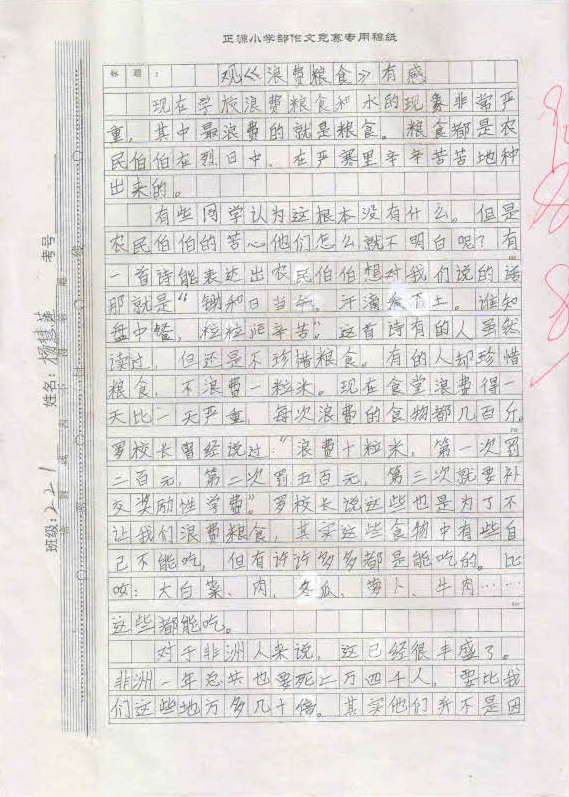 正源小学部作文竞赛专用稿纸
标题：观《浪费粮食》有感
现在学校浪费粮食和水的现象非常严
重，其中最浪费的就是粮食。粮食都是农
民伯伯在烈日中、在严寒里辛辛苦苦地种
出来的。
有些同学认为这根本没有什么。但是
农民伯伯的苦心他们怎么就不明白呢？有
一首诗能表达出农民伯伯想对我们说的话
那就是“锄和日当午，汗滴禾下土。谁知
盘中餐，粒粒皆辛苦”。这首诗有的人虽然
读过，但还是不珍惜粮食。有的人却珍惜
粮食，不浪费一粒米。现在食堂浪费得一
天比一天严重，每次浪费的食物都几百斤。
罗校长曾经说过：“浪费十粒米，第一次罚
二百元，第二次罚五百元，第三次就要补
交奖励性学费”。罗校长说这些也是为了不
让我们浪费粮食，其实这些食物中有些自
己不能吃，但有许许多多都是能吃的。比
如：大白菜、肉、冬瓜、萝卜、牛肉……
这些都能吃。
对于非洲人来说，这已经很丰盛了。
非洲一年总共也要死二万四千人，要比我
们这些地方多几十倍。其实他们并不是因
考号
姓名：杨慧萍
班级：221